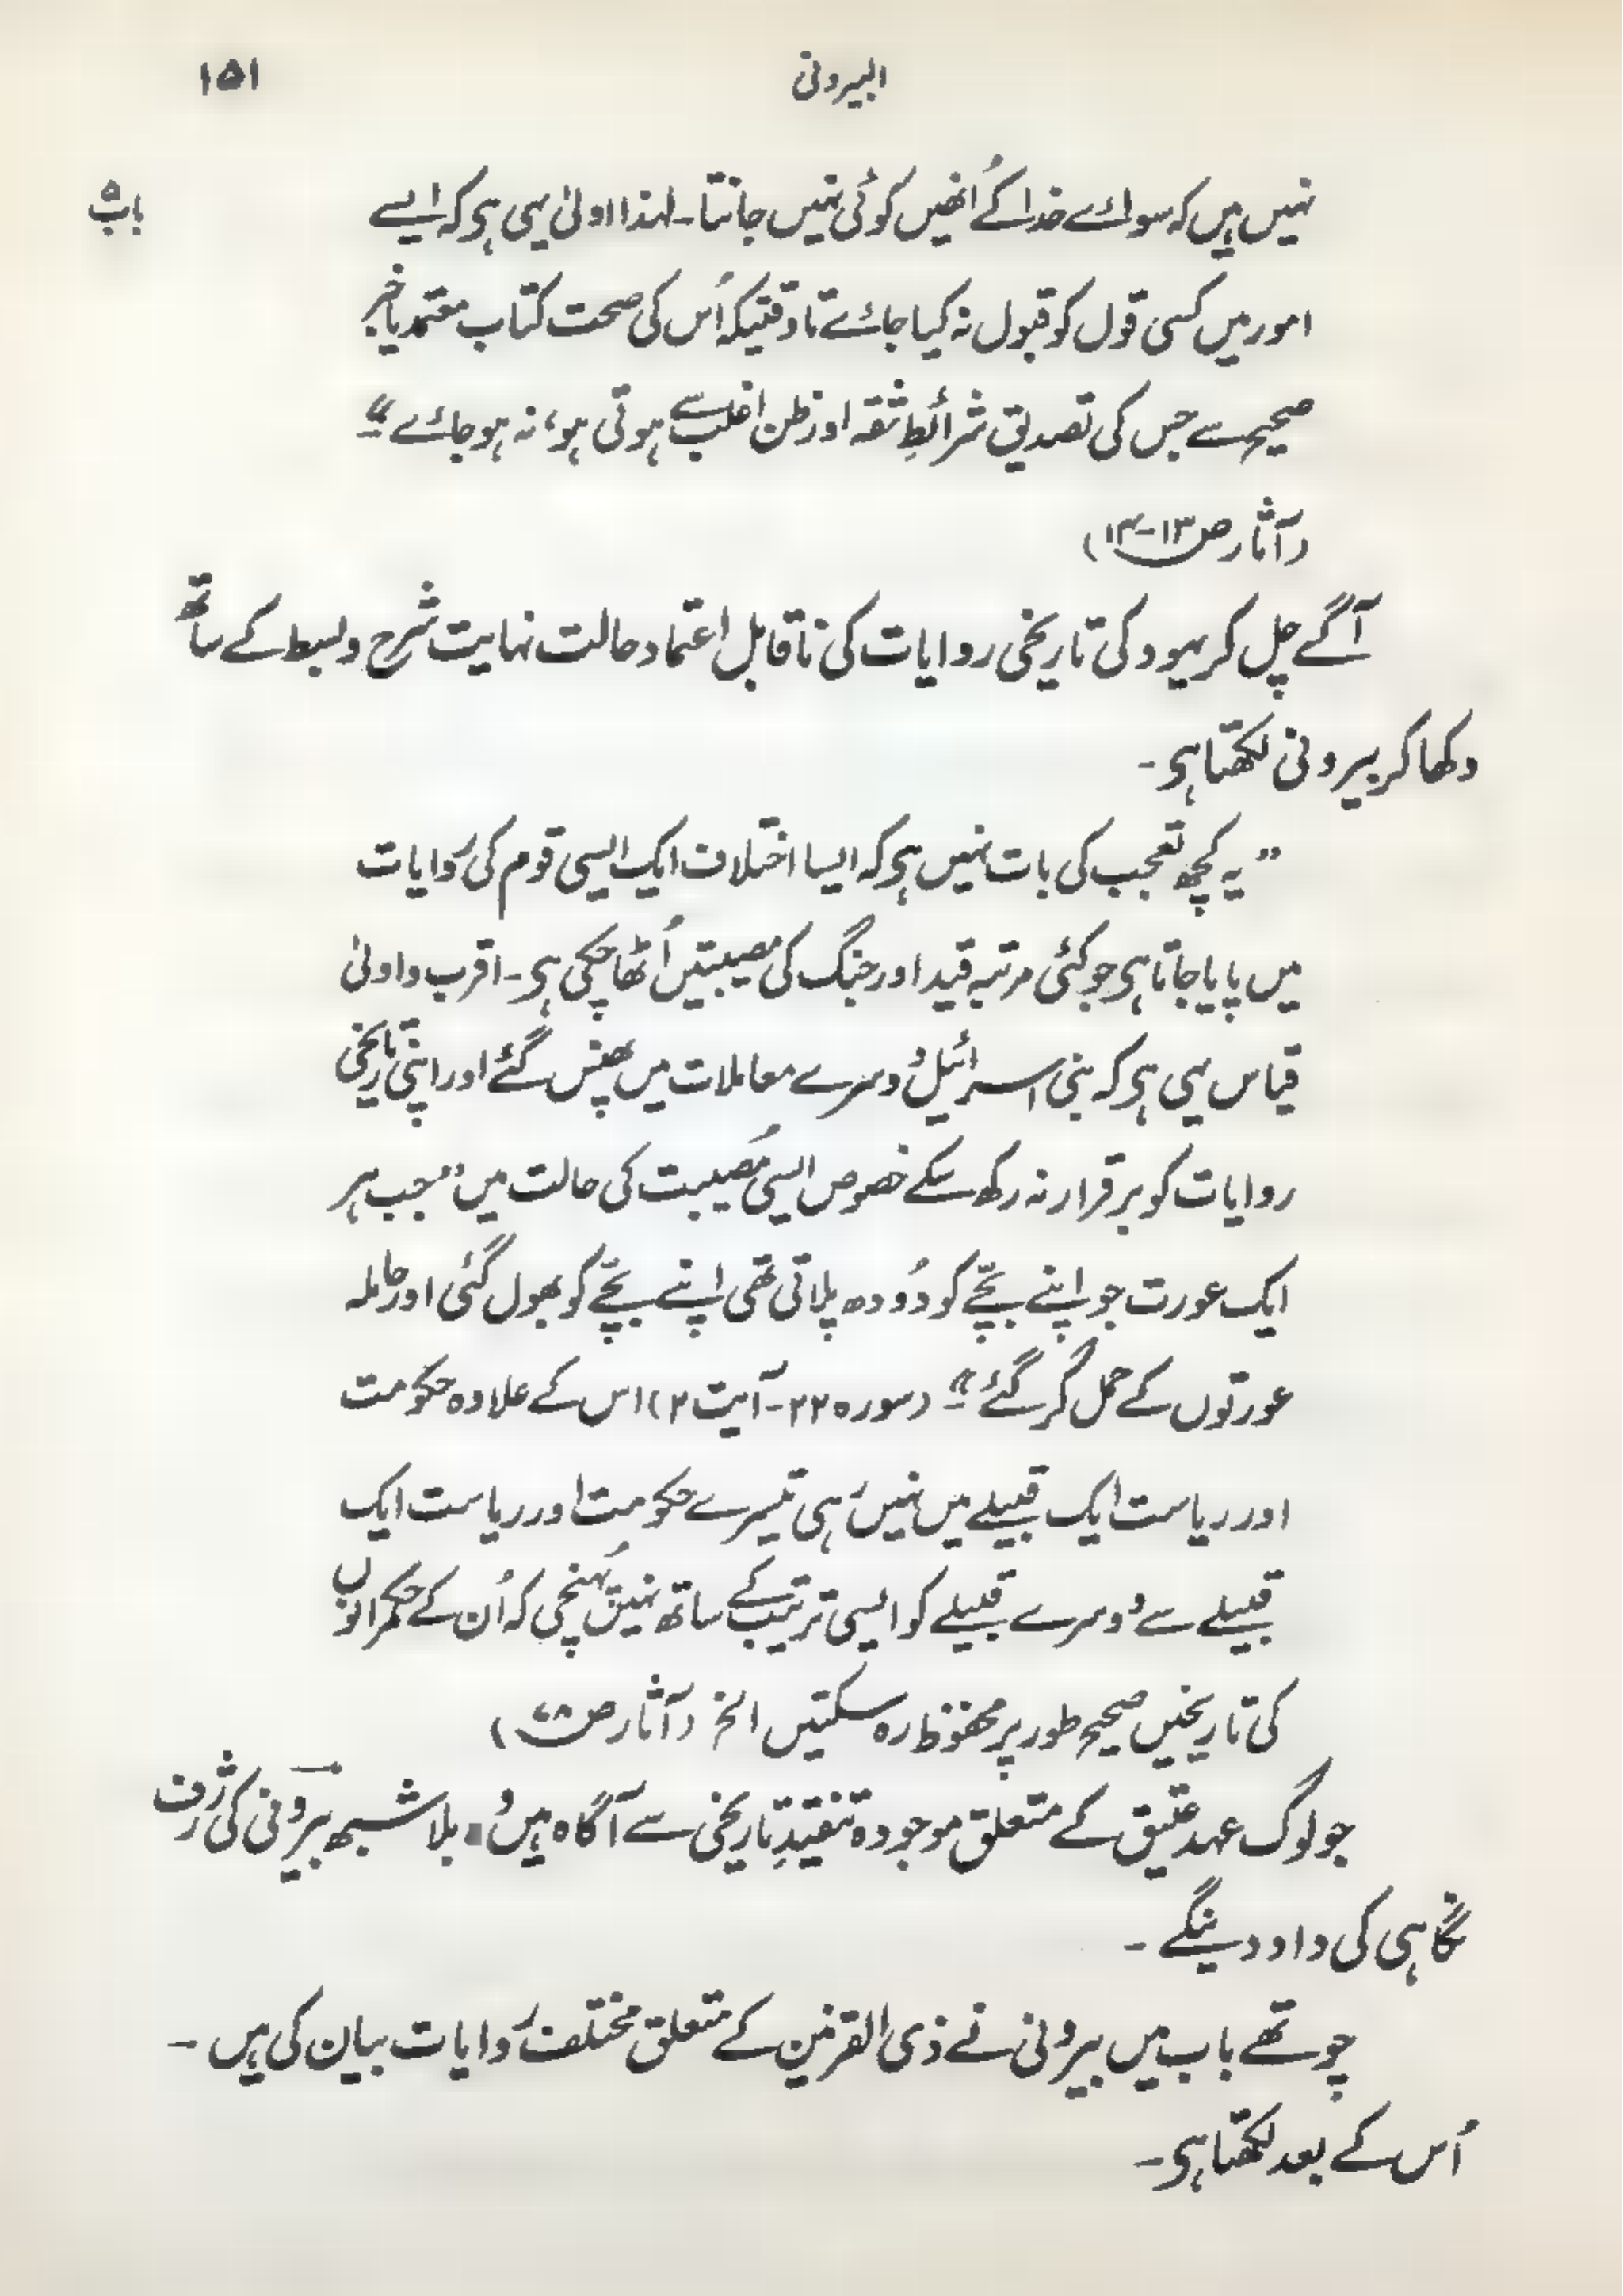 البیرونی ۱۵۱
باب ۵
نہیں ہیں کہ سوائے خدا کے اُنھیں کوئی نہیں جانتا۔ لہذا اولیٰ یہی ہی کہ ایسے
امور میں کسی قول کو قبول نہ کیا جائے تاوقتیکہ اُس کی صحت کتاب معتمد یا خبر
صحیح سے جس کی تصدیق شرائطِ ثقہ اور ظن اغلب سے ہوتی ہو، نہ ہو جائے“
(آثار ص ۱۳-۱۴)
آگے چل کر یہود کی تاریخی روایات کی ناقابل اعتماد حالت نہایت شرح و بسط کے ساتھ
دکھا کر بیرونی لکھتا ہی۔
”یہ کچھ تعجب کی بات نہیں ہی کہ ایسا اختلاف ایک ایسی قوم کی روایات
میں پایا جاتا ہی جو کئی مرتبہ قید اور جنگ کی مصیبتیں اُٹھا چکی ہی۔ اقرب و اولیٰ
قیاس یہی ہی کہ بنی اسرائیل دُوسرے معاملات میں پھنس گئے اور اپنی تاریخی
روایات کو برقرار نہ رکھ سکے خصوص ایسی مُصیبت کی حالت میں ”جب ہر
ایک عورت جو اپنے بچّے کو دُودھ پلاتی تھی اپنے بچّے کو بھول گئی اور حاملہ
عورتوں کے حمل گر گئے“ (سورہ ۲۲-آیت ۲) اس کے علاوہ حکومت
اور ریاست ایک قبیلے میں نہیں رہی تیسرے حکومت اور ریاست ایک
قبیلے سے دُوسرے قبیلے کو ایسی ترتیب کے ساتھ نہیں پُہنچی کہ اُن کے حکمرانوں
کی تاریخیں صحیح طور پر محفوظ رہ سکتیں الخ (آثار ص)
جو لوگ عہد عتیق کے متعلق موجودہ تنقیدِ تاریخی سے آگاہ ہیں وُہ بلاشبہ بیرونی کی ژرف
نگاہی کی داد دینگے۔
چوتھے باب میں بیرونی نے ذی القرنین کے متعلق مختلف روایات بیان کی ہیں۔
اُس کے بعد لکھتا ہی۔